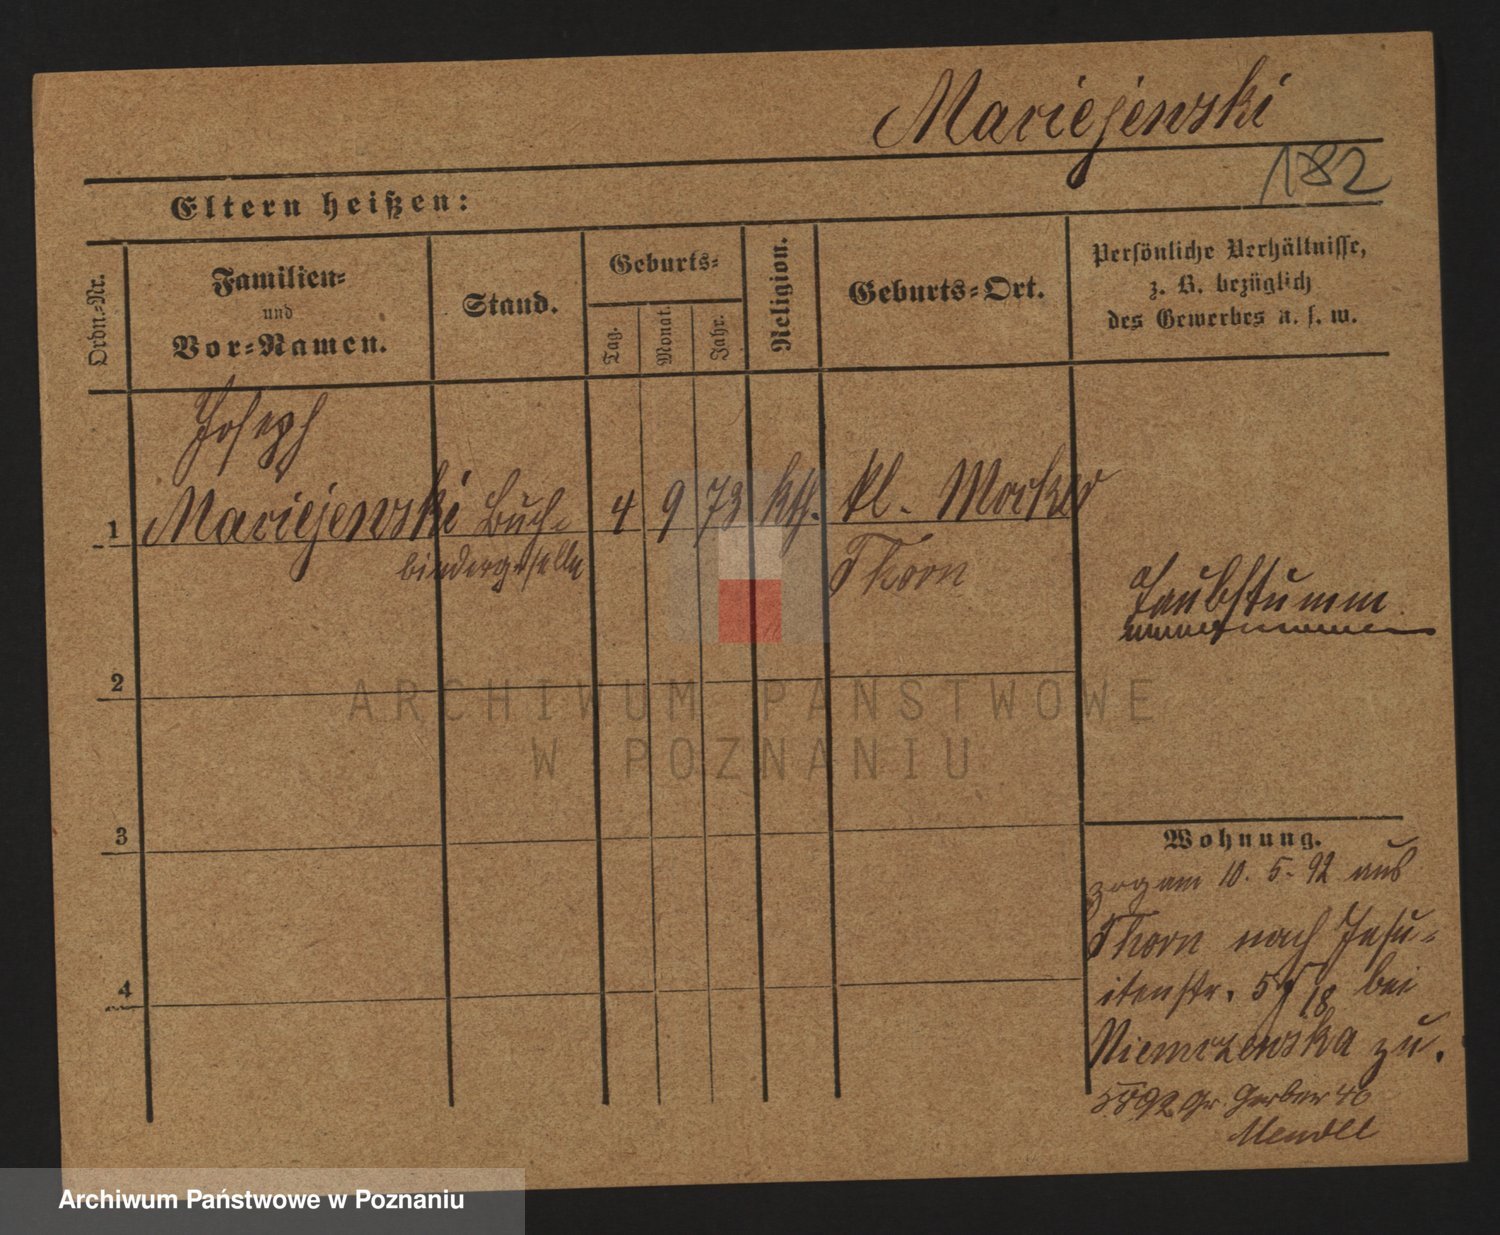 Maciejewski
182
Eltern heißen:
Ordn.-Nr.
Familien-
und
Vor-Namen.
Stand.
Geburts-
Tag.
Monat.
Jahr.
Religion.
Geburts-Ort.
Persönliche Verhältnisse,
z. B. bezüglich
des Gewerbes u. s. w.
Joseph
1 Maciejewski Buch- 4 9 73 kth. kl. Mocker
bindergeselle Thorn
Taubstumm
ARCHIWUM PAŃSTWOWE
W POZNANIU
2
3
4
Wohnung.
zog am 10. 5. 92 aus
Thorn nach Jesu-
itenstr. 5 18 bei
Niemczewska zu.
92 Gr. Gerber 46
Mendel
Archiwum Państwowe w Poznaniu